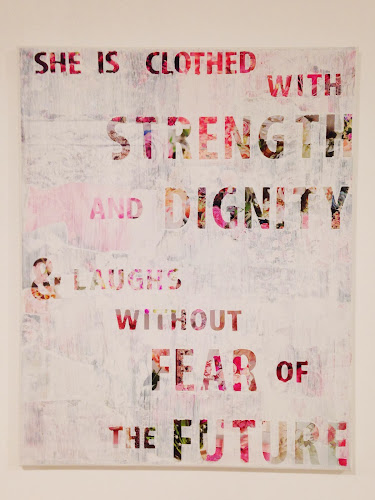 SHE IS CLOTHED
WITH
STRENGTH
AND DIGNITY
& LAUGHS
WITHOUT
FEAR OF
THE FUTURE